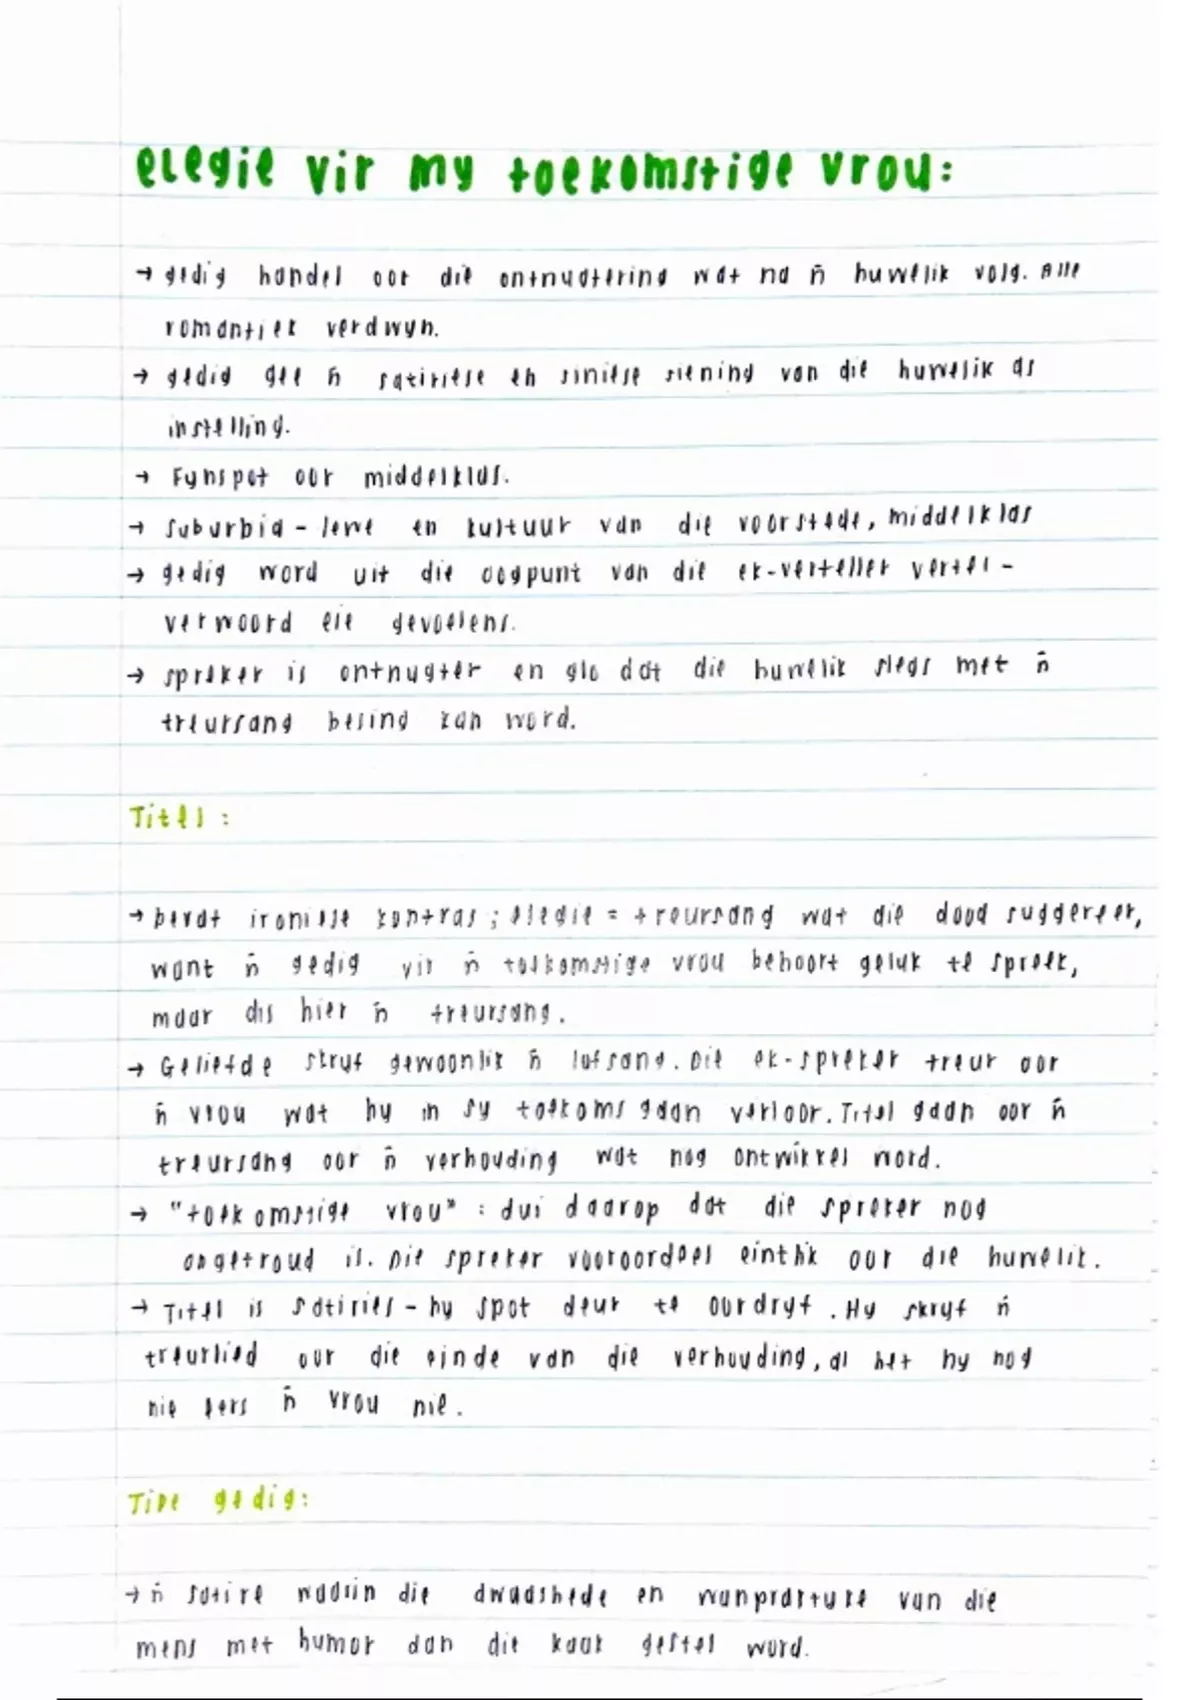 elegie vir my toekomstige vrou:
→ gedig handel oor die ontnugtering wat na ń huwelik volg. Alle
romantiek verdwyn.
→ gedig gee ń satiriese en siniese siening van die huwelik as
instelling.
→ Fynspot oor middelklas.
→ suburbia - lewe en kultuur van die voorstede, middelklas
→ gedig word uit die oogpunt van die ek-verteller vertel -
verwoord eie gevoelens.
→ spreker is ontnugter en glo dat die huwelik slegs met ń
treursang besing kan word.
Titel:
→ bevat ironiese kontras; elegie = treursang wat die dood suggereer,
want ń gedig vir ń toekomstige vrou behoort geluk te spreek,
maar dis hier ń treursang.
→ Geliefde skryf gewoonlik ń lofsang. Die ek-spreker treur oor
ń vrou wat hy in sy toekoms gaan verloor. Titel gaan oor ń
treursang oor ń verhouding wat nog ontwikkel word.
→ "toekomstige vrou" : dui daarop dat die spreker nog
ongetroud is. Die spreker vooroordeel eintlik oor die huwelik.
→ Titel is satiries - hy spot deur te oordryf. Hy skryf ń
treurlied oor die einde van die verhouding, al het hy nog
nie eers ń vrou nie.
Tipe gedig:
→ ń satire waarin die dwaashede en wanpraktyke van die
mens met humor aan die kaak gestel word.